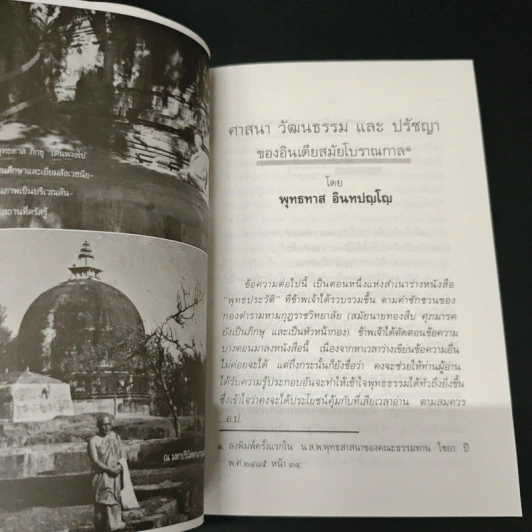 พุทธทาส ภิกขุ เดินทางไป
นศึกษาและเยี่ยมสังเวชนีย-
ภาพเป็นบริเวณต้น-
สถานที่ตรัสรู้
ศาสนา วัฒนธรรม และ ปรัชญา
ของอินเดียสมัยโบราณกาล๑
โดย
พุทธทาส อินทปญฺโญ
ข้อความต่อไปนี้ เป็นตอนหนึ่งแห่งสำเนาร่างหนังสือ
“พุทธประวัติ” ที่ข้าพเจ้าได้รวบรวมขึ้น ตามคำชักชวนของ
กองตำรามหามกุฏราชวิทยาลัย (สมัยนายทองสืบ ศุภมารค
ยังเป็นภิกษุ และเป็นหัวหน้ากอง). ข้าพเจ้าได้ตัดตอนข้อความ
บางตอนมาลงหนังสือนี้ เนื่องจากหาเวลาว่างเขียนข้อความอื่น
ไม่ค่อยจะได้ แต่ถึงกระนั้นก็ยังเชื่อว่า คงจะช่วยให้ท่านผู้อ่าน
ได้รับความรู้ประกอบอันจะทำให้เข้าใจพุทธธรรมได้ทั่วถึงยิ่งขึ้น
ซึ่งเข้าใจว่าคงจะได้ประโยชน์คุ้มกับที่เสียเวลาอ่าน ตามสมควร
..อ.ป.
๑. ลงพิมพ์ครั้งแรกใน น.ส.พ.พุทธสาสนาของคณะธรรมทาน ไชยา ปี
พ.ศ.๒๔๘๕ หน้า ๓๔.